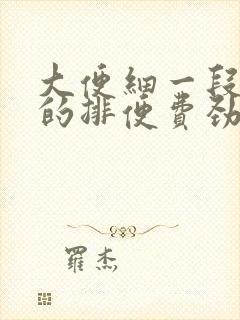 大便細一段
的排便費劲
羅杰